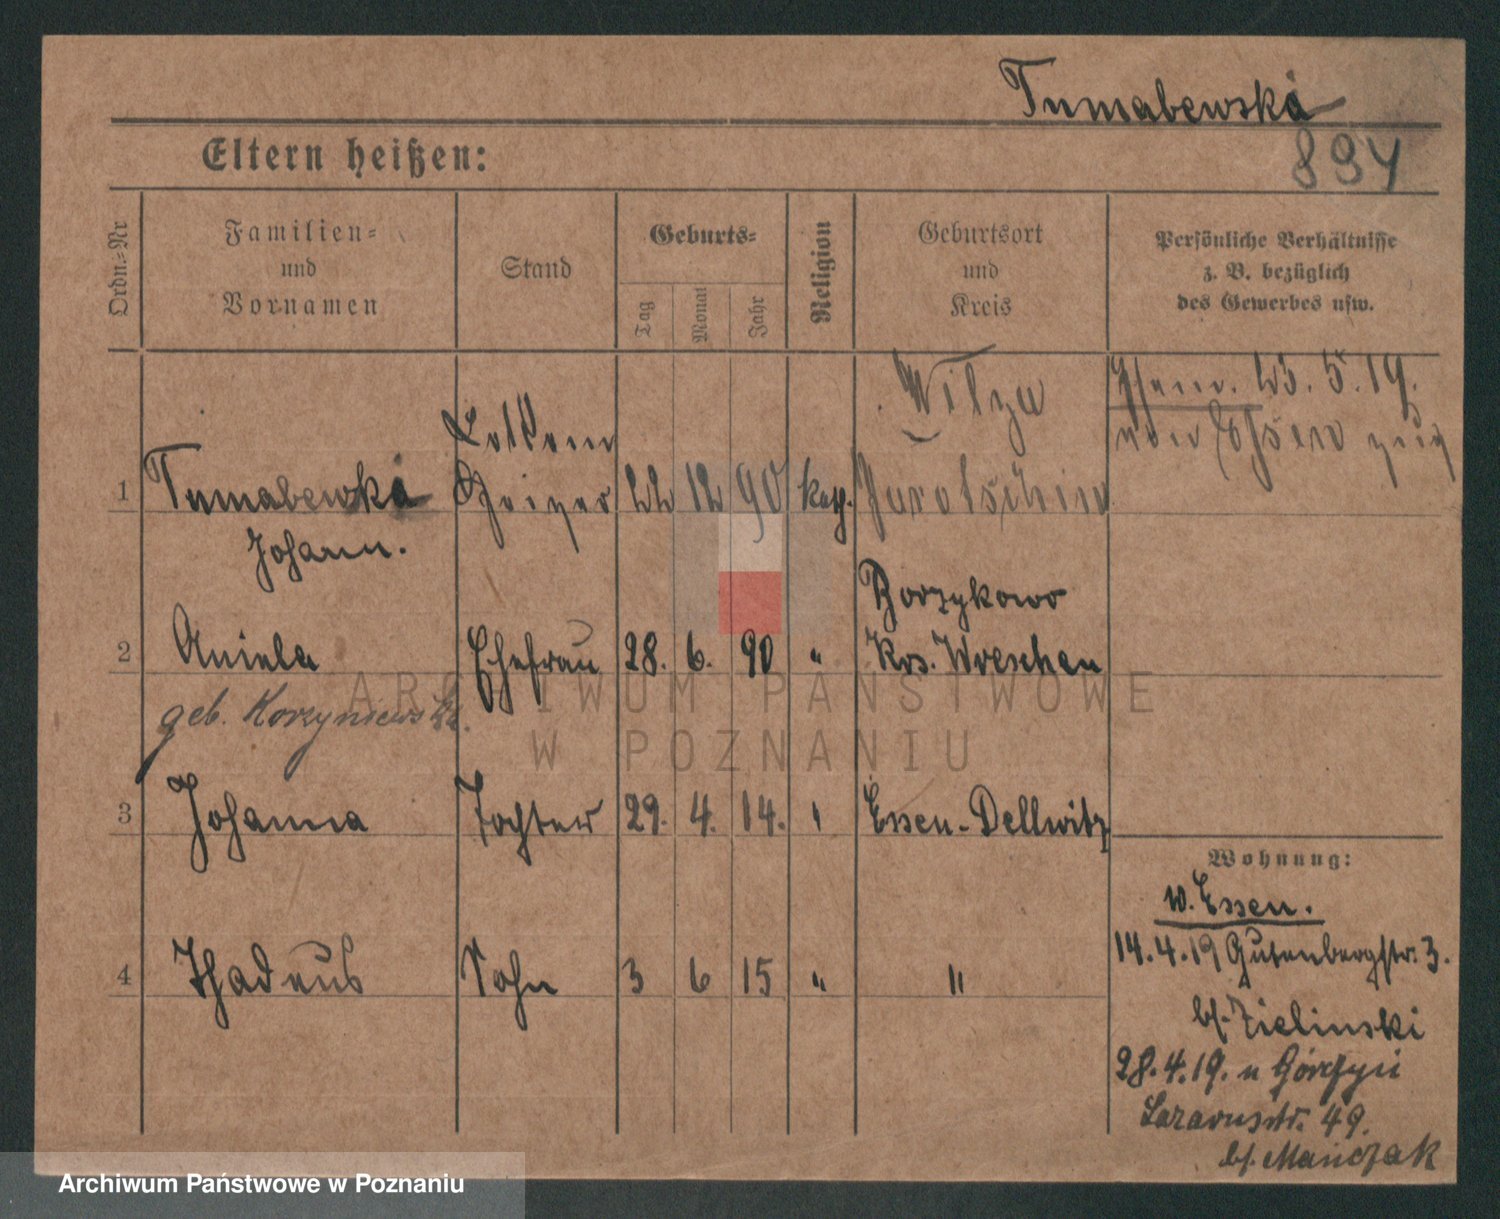 Tumabewska
894
Eltern heißen:
Ordn.-Nr
Familien-
und
Vornamen
Stand
Geburts-
Tag
Monat
Jahr
Religion
Geburtsort
und
Kreis
Persönliche Verhältnisse
z. B. bezüglich
des Gewerbes usw.
1
Tumabewska
Johann.
Heizer
22
12
90
kath.
Wilza
Jarotschin
23. 5. 19.
von Essen
2
Aniela
geb. Korzyniewska.
Ehefrau
28.
6.
90
"
Borzykowo
Krs. Wreschen
3
Johanna
Tochter
29.
4.
14.
"
Essen-Dellwitz
4
Thadeus
Sohn
3
6
15
"
"
Wohnung:
v. Essen.
14.4.19 Gutenbergstr. 3.
bf. Zielinski
28.4.19. n Górczyn
Lazarusstr. 49.
bf. Mańczak
ARCHIWUM PAŃSTWOWE
W POZNANIU
Archiwum Państwowe w Poznaniu